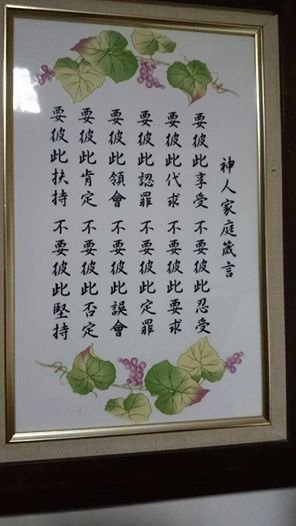 神人家庭箴言
要彼此享受 不要彼此忍受
要彼此代求 不要彼此要求
要彼此認罪 不要彼此定罪
要彼此領會 不要彼此誤會
要彼此肯定 不要彼此否定
要彼此扶持 不要彼此堅持